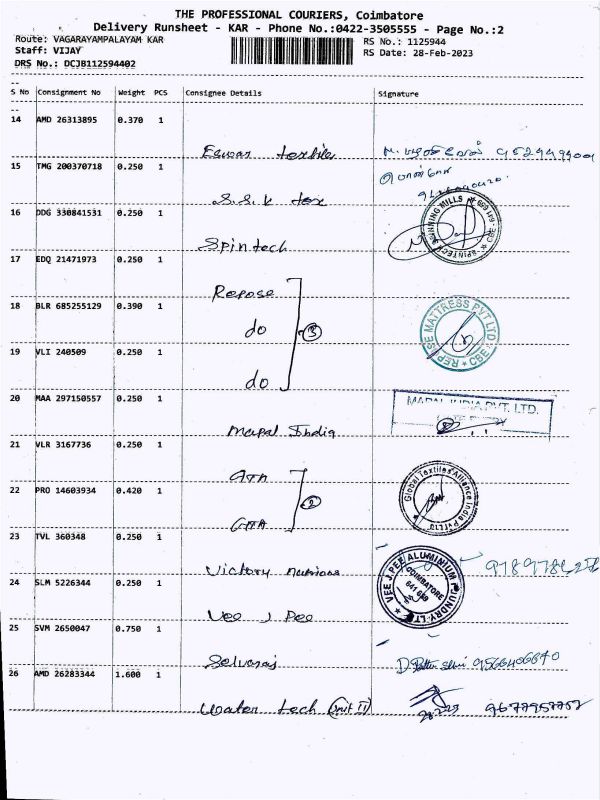 THE PROFESSIONAL COURIERS, Coimbatore
Delivery Runsheet - KAR - Phone No.:0422-3505555 - Page No.:2
Route: VAGARAYAMPALAYAM KAR
RS No.: 1125944
Staff: VIJAY
RS Date: 28-Feb-2023
DRS No.: DCJB112594402
S No Consignment No Weight PCS Consignee Details Signature
14 AMD 26313895 0.370 1
Eswar textiles
15 TMG 200370718 0.250 1
S.S.V tex
16 DDG 330841531 0.250 1
Spintech
SPINNING MILLS
17 EDQ 21471973 0.250 1
Repose
18 BLR 685255129 0.390 1
do
3
REPOSE MATTRESS PVT LTD CBE
19 VLI 240509 0.250 1
do
20 MAA 297150557 0.250 1
Mapal India
MAPAL INDIA PVT. LTD.
21 VLR 3167736 0.250 1
GTA
22 PRO 14603934 0.420 1
GTA
2
Global Textiles Alliance India Pvt Ltd
23 TVL 360348 0.250 1
Victory
24 SLM 5226344 0.250 1
Vee J Pee
VEE J.PEE ALUMINIUM FOUNDRY
COIMBATORE
25 SVM 2650047 0.750 1
Selvaraj
9566406640
26 AMD 26283344 1.600 1
Water tech Unit II
28.2.23
9677957752